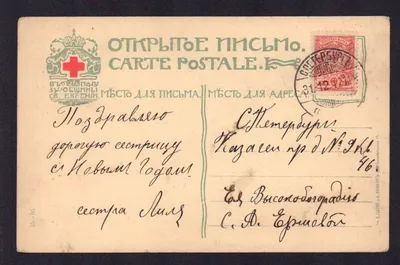 ОТКРЫТОЕ ПИСЬМО.
CARTE POSTALE.
МѢСТО ДЛЯ ПИСЬМА
МѢСТО ДЛЯ АДРЕСА
Поздравляю
дорогую сестрицу
съ Новымъ Годомъ
сестра Лиля
С.Петербургъ
Казачен пр. д № 9 кв
46.
Ея Высокоблагородію
С. А. Ермовой